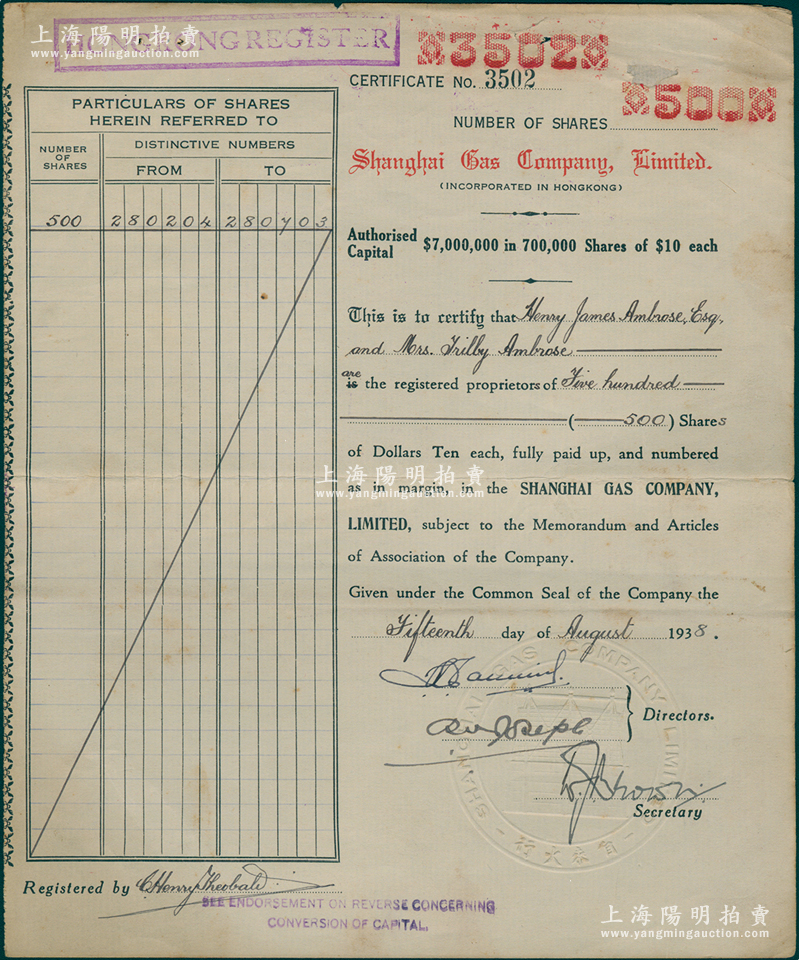 上海陽明拍賣
www.yangmingauction.com
HONGKONG REGISTER
3502
CERTIFICATE No. 3502
500
NUMBER OF SHARES
PARTICULARS OF SHARES
HEREIN REFERRED TO
NUMBER
OF
SHARES
DISTINCTIVE NUMBERS
FROM
TO
500 280204 280703
Shanghai Gas Company, Limited.
(INCORPORATED IN HONGKONG)
Authorised
Capital
$7,000,000 in 700,000 Shares of $10 each
This is to certify that Henry James Ambrose, Esq.,
and Mrs. Trilby Ambrose
are
is the registered proprietors of Five hundred
(500) Shares
of Dollars Ten each, fully paid up, and numbered
上海陽明拍賣
www.yangmingauction.com
as in margin, in the SHANGHAI GAS COMPANY,
LIMITED, subject to the Memorandum and Articles
of Association of the Company.
Given under the Common Seal of the Company the
Fifteenth day of August 1938.
SHANGHAI GAS COMPANY LIMITED
Directors.
Secretary
Registered by C Henry Theobald
SEE ENDORSEMENT ON REVERSE CONCERNING
CONVERSION OF CAPITAL.
上海陽明拍賣
www.yangmingauction.com